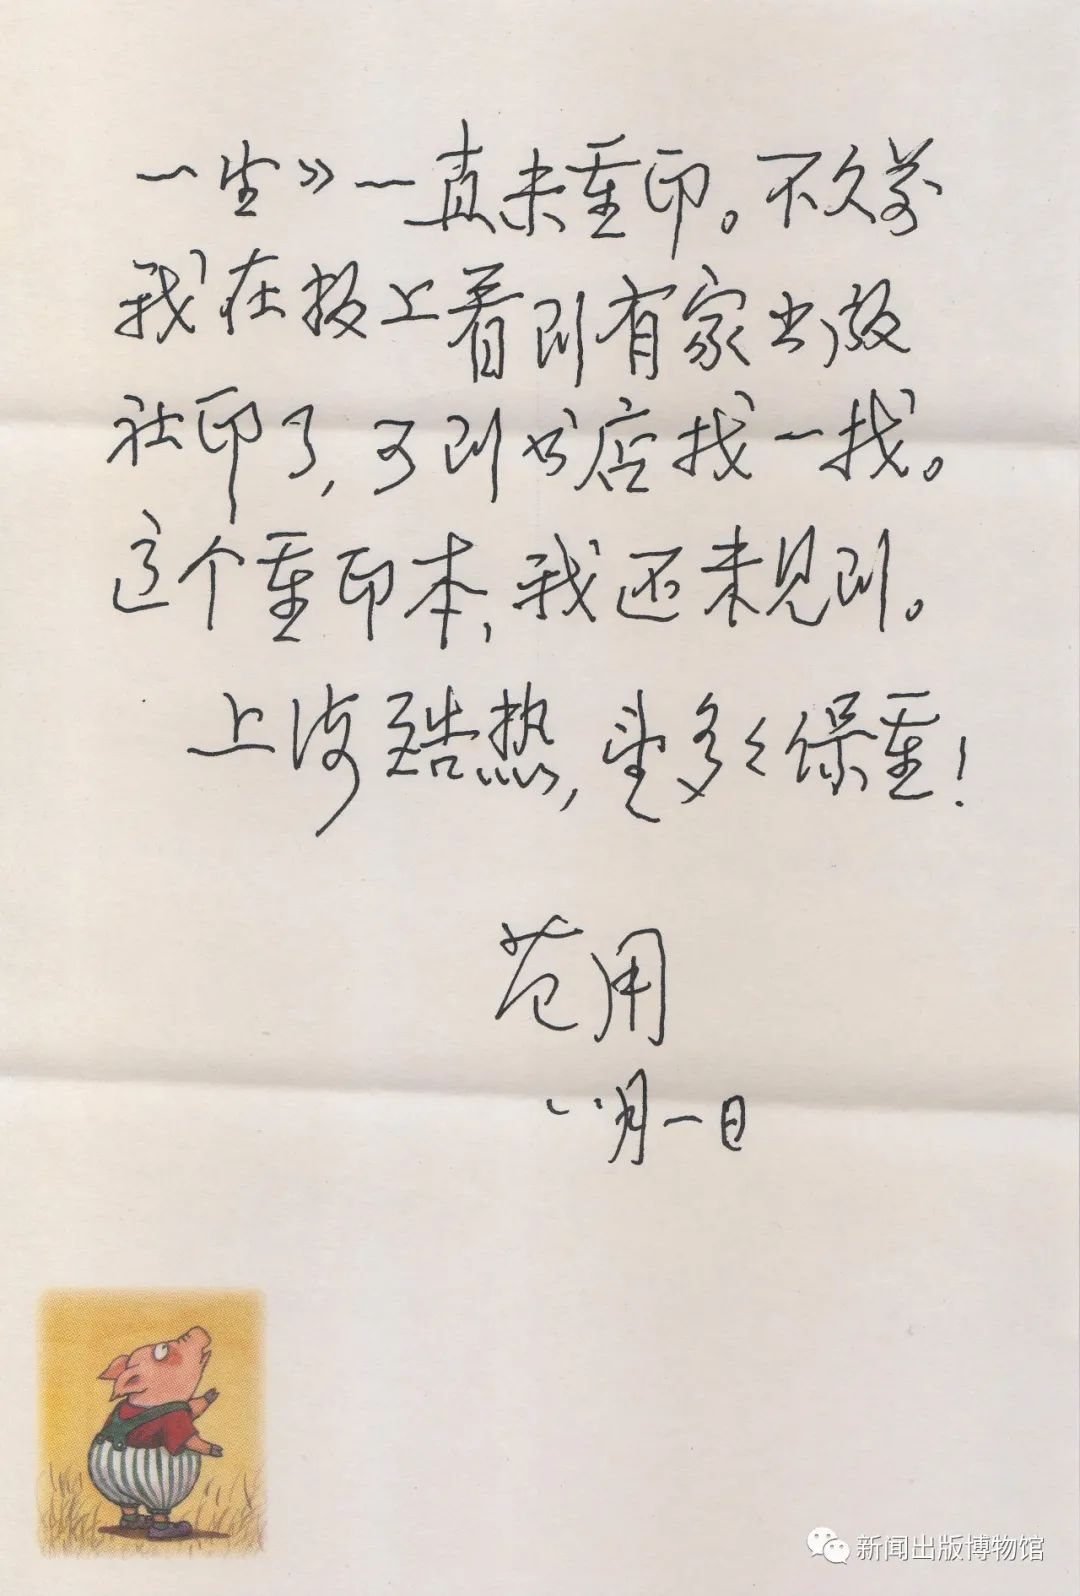 一生》一直未重印。不久前
我在报上看到有家出版
社印了，可到书店找一找。
这个重印本，我还未见到。
上海酷热，望多多保重！
范用
八月一日
新闻出版博物馆